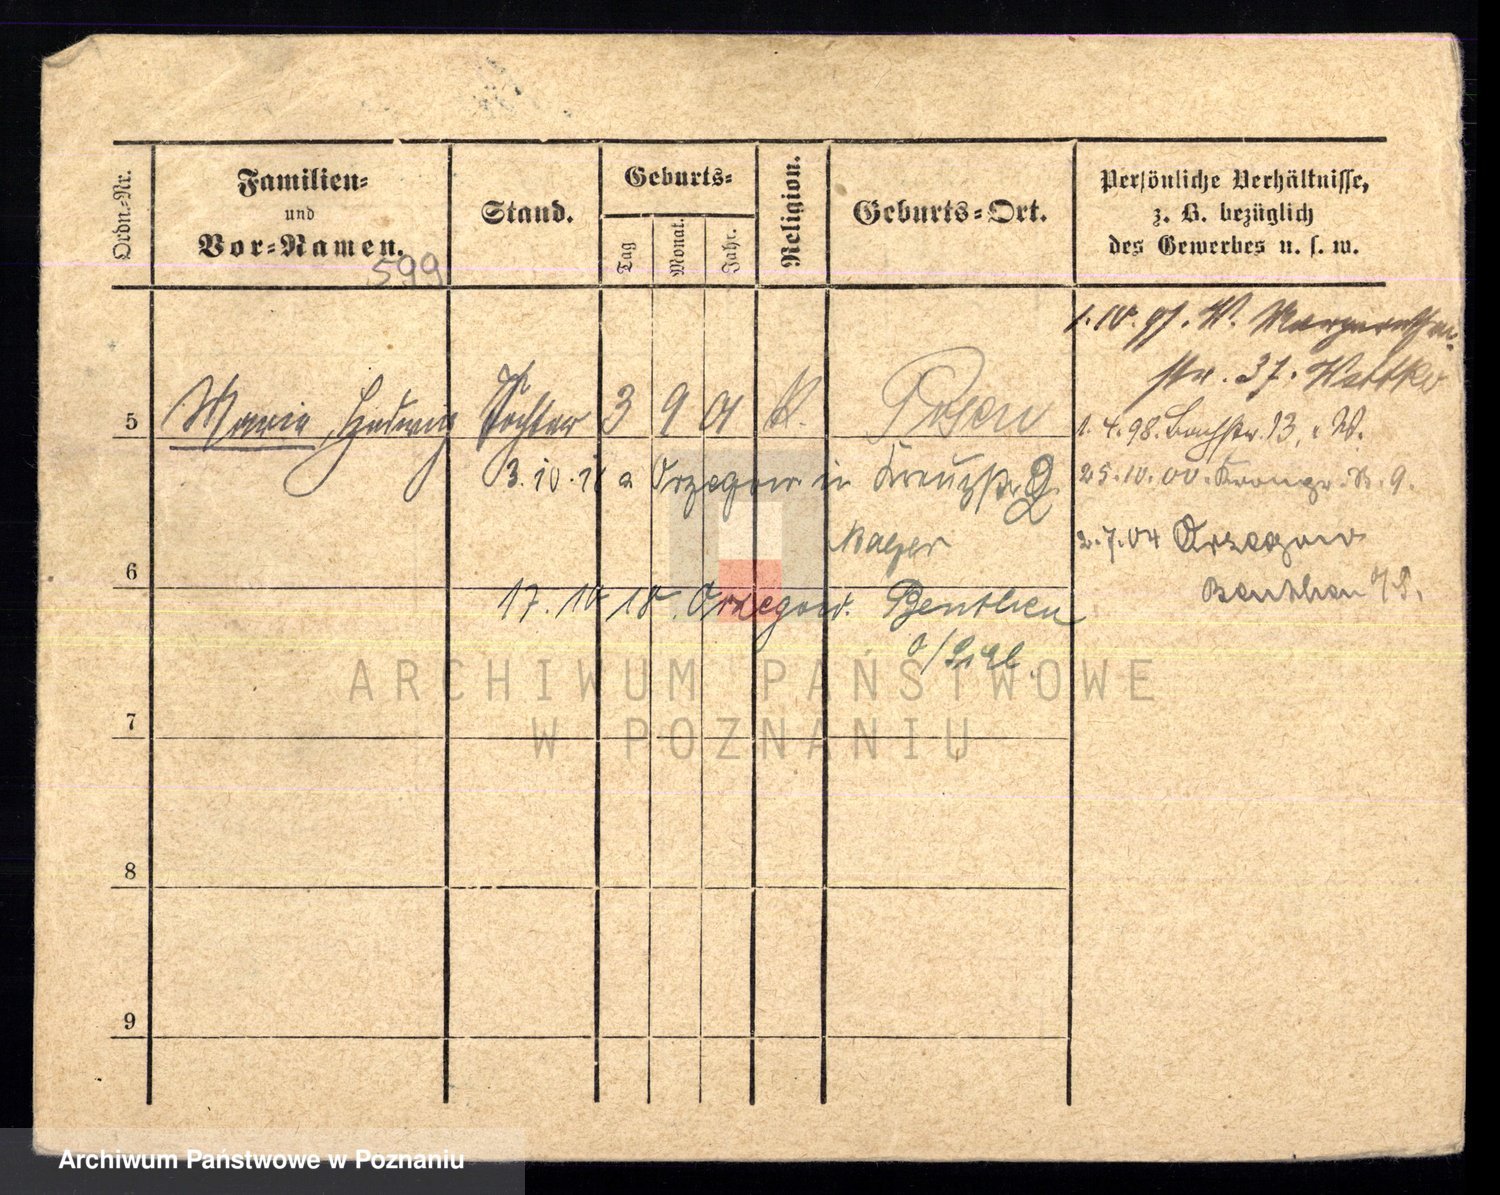 Ordn.-Nr.
Familien-
und
Vor-Namen.
599
Stand.
Geburts-
Tag
Monat.
Jahr.
Religion.
Geburts-Ort.
Persönliche Verhältnisse,
z. B. bezüglich
des Gewerbes u. s. w.
1. 10. 97. W. Margarethen-
str. 37. Wattke
5 Marie, Hedwig Tochter 3 9 91 K. Posen
1. 4. 98. Bachstr. 13, W.
3. 10. 18 a Orzegow in Kreuzstr. 2
25. 10. 00. Kronpr. 9.
2. 7. 04 Orzegow
6
Beuthen O/S.
17. 10 18. Orzegow. Beuthen
O/Schl
7
8
9
ARCHIWUM PAŃSTWOWE
W POZNANIU
Archiwum Państwowe w Poznaniu